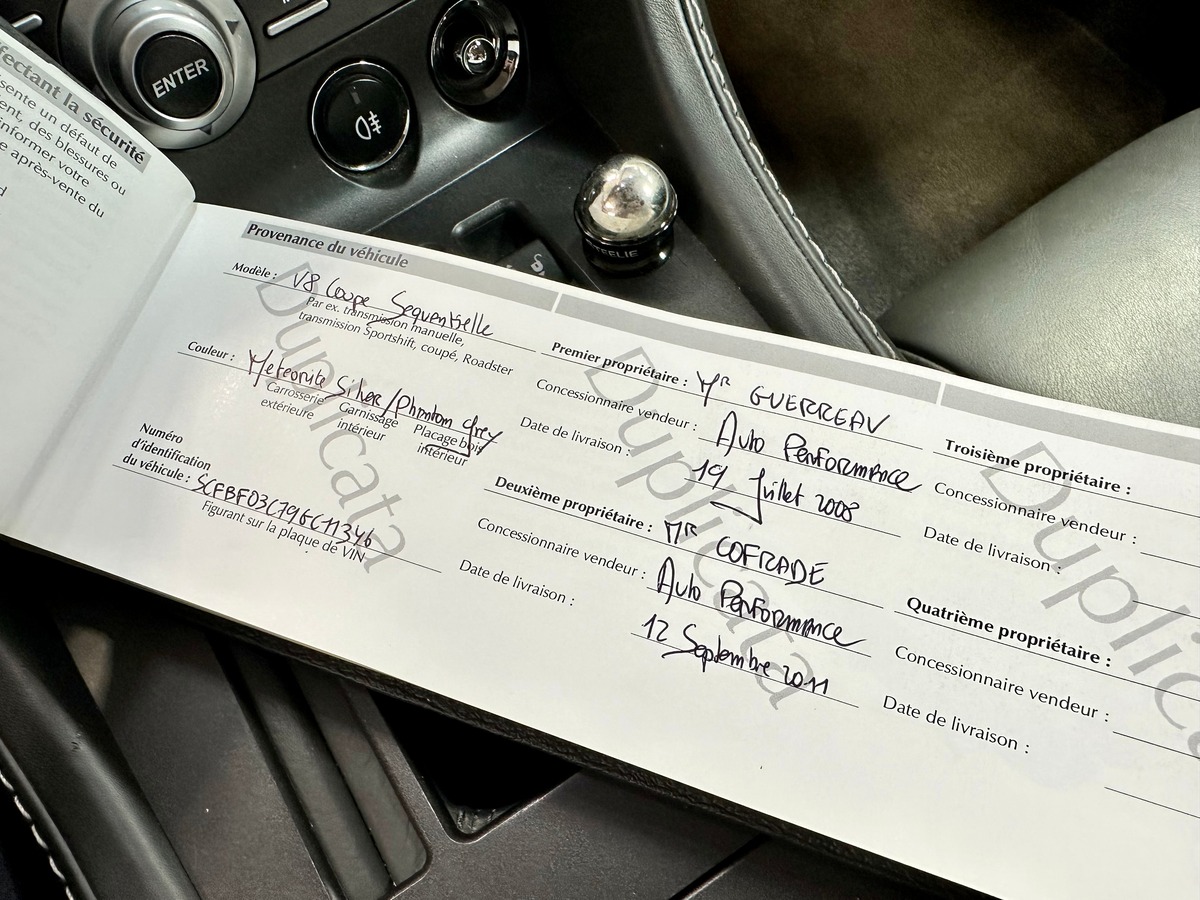 ENTER
FEELIE
fectant la sécurité
sente un défaut de
ent, des blessures ou
informer votre
e après-vente du
d
Provenance du véhicule
Modèle : V8 Coupe Sequentielle
Par ex. transmission manuelle,
transmission Sportshift, coupé, Roadster
Couleur : Meteorite Silver/Phantom Grey
Carrosserie extérieure
Garnissage intérieur
Placage bois intérieur
Numéro
d'identification
du véhicule : SCFBF03C79GC11346
Figurant sur la plaque de VIN
Duplicata
Premier propriétaire : Mr GUERREAU
Concessionnaire vendeur : Auto Performance
Date de livraison : 19 Juillet 2008
Deuxième propriétaire : Mr COFRADE
Concessionnaire vendeur : Auto Performance
Date de livraison : 12 Septembre 2011
Duplicata
Troisième propriétaire :
Concessionnaire vendeur :
Date de livraison :
Quatrième propriétaire :
Concessionnaire vendeur :
Date de livraison :
Duplica